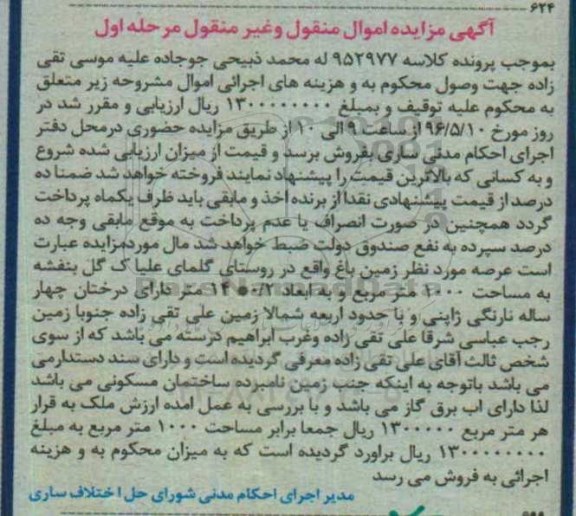 ۶۲۴
آگهی مزایده اموال منقول وغیر منقول مرحله اول
بموجب پرونده کلاسه ۹۵۲۹۷۷ له محمد ذبیحی جوجاده علیه موسی تقی
زاده جهت وصول محکوم به و هزینه های اجرائی اموال مشروحه زیر متعلق
به محکوم علیه توقیف و بمبلغ ۱۳۰۰۰۰۰۰۰۰ ریال ارزیابی و مقرر شد در
روز مورخ ۹۶/۵/۱۰ از ساعت ۹ الی ۱۰ از طریق مزایده حضوری درمحل دفتر
اجرای احکام مدنی ساری بفروش برسد و قیمت از میزان ارزیابی شده شروع
و به کسانی که بالاترین قیمت را پیشنهاد نمایند فروخته خواهد شد ضمنا ده
درصد از قیمت پیشنهادی نقدا از برنده اخذ و مابقی باید ظرف یکماه پرداخت
گردد همچنین در صورت انصراف یا عدم پرداخت به موقع مابقی وجه ده
درصد سپرده به نفع صندوق دولت ضبط خواهد شد مال موردمزایده عبارت
است عرصه مورد نظر زمین باغ واقع در روستای گلمای علیا ک گل بنفشه
به مساحت ۱۰۰۰ متر مربع و به ابعاد ۱۴ متر دارای درختان چهار
ساله نارنگی ژاپنی و با حدود اربعه شمالا زمین علی تقی زاده جنوبا زمین
رجب عباسی شرقا علی تقی زاده وغرب ابراهیم درسته می باشد که از سوی
شخص ثالث آقای علی تقی زاده معرفی گردیده است و دارای سند دستدارمی
می باشد باتوجه به اینکه جنب زمین نامبرده ساختمان مسکونی می باشد
لذا دارای اب برق گاز می باشد و با بررسی به عمل امده ارزش ملک به قرار
هر متر مربع ۱۳۰۰۰۰۰ ریال جمعا برابر مساحت ۱۰۰۰ متر مربع به مبلغ
۱۳۰۰۰۰۰۰۰۰ ریال براورد گردیده است که به میزان محکوم به و هزینه
اجرائی به فروش می رسد
مدیر اجرای احکام مدنی شورای حل اختلاف ساری